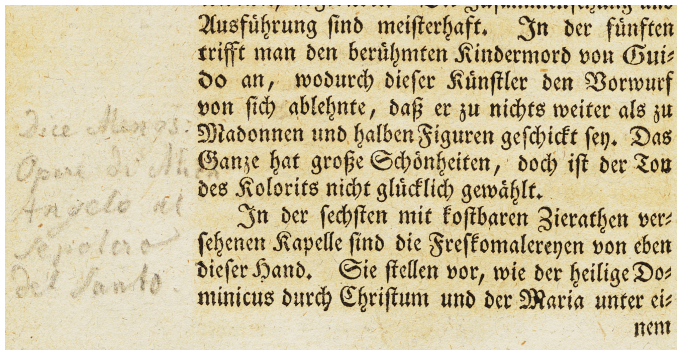 Ausführung sind meisterhaft. In der fünften
trifft man den berühmten Kindermord von Gui-
do an, wodurch dieser Künstler den Vorwurf
von sich ablehnte, daß er zu nichts weiter als zu
Madonnen und halben Figuren geschickt sey. Das
Ganze hat große Schönheiten, doch ist der Ton
des Kolorits nicht glücklich gewählt.
In der sechsten mit kostbaren Zierathen ver-
sehenen Kapelle sind die Freskomalereyen von eben
dieser Hand. Sie stellen vor, wie der heilige Do-
minicus durch Christum und der Maria unter ei-
nem
Dice Mengs:
Opere di
Angelo al
sepolcro
del Santo.